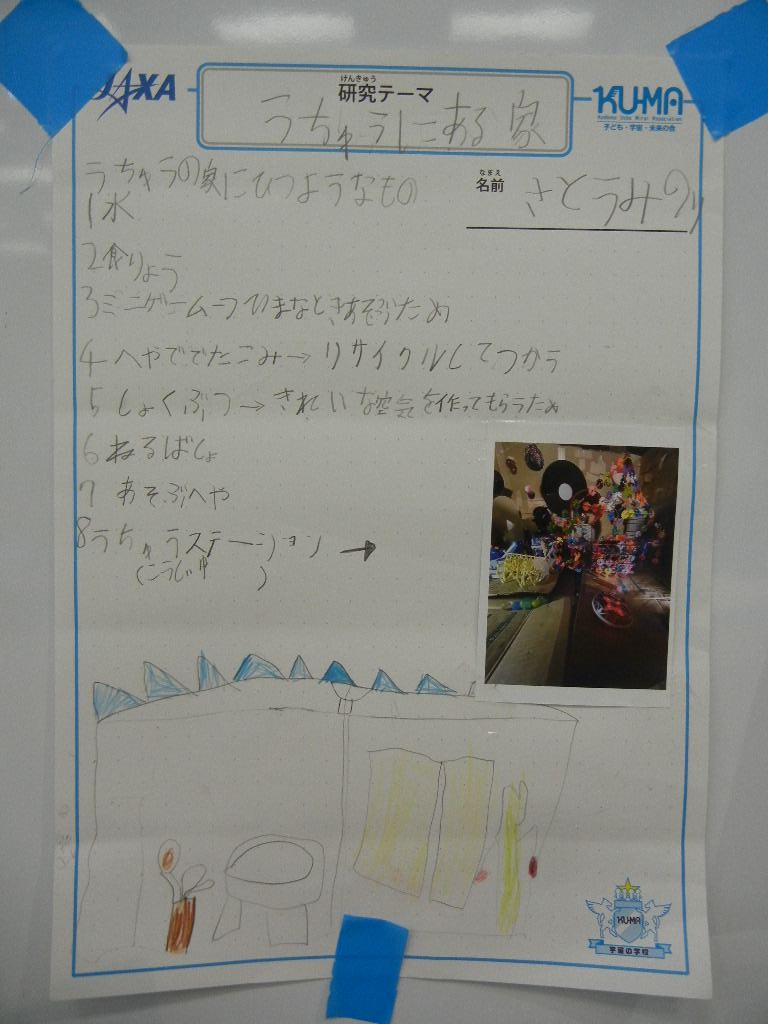 JAXA
けんきゅう
研究テーマ
うちゅうにある家
KU-MA
子ども・宇宙・未来の会
なまえ
名前
さとうみのり
うちゅうの家にひつようなもの
1水
2食りょう
3ミニゲーム→ひまなときあそぶため
4へやででたごみ→リサイクルしてつかう
5しょくぶつ→きれいな空気を作ってもらうため
6ねるばしょ
7あそぶへや
8うちゅうステーション→
(こうじゅ )
KU-MA
宇宙の学校